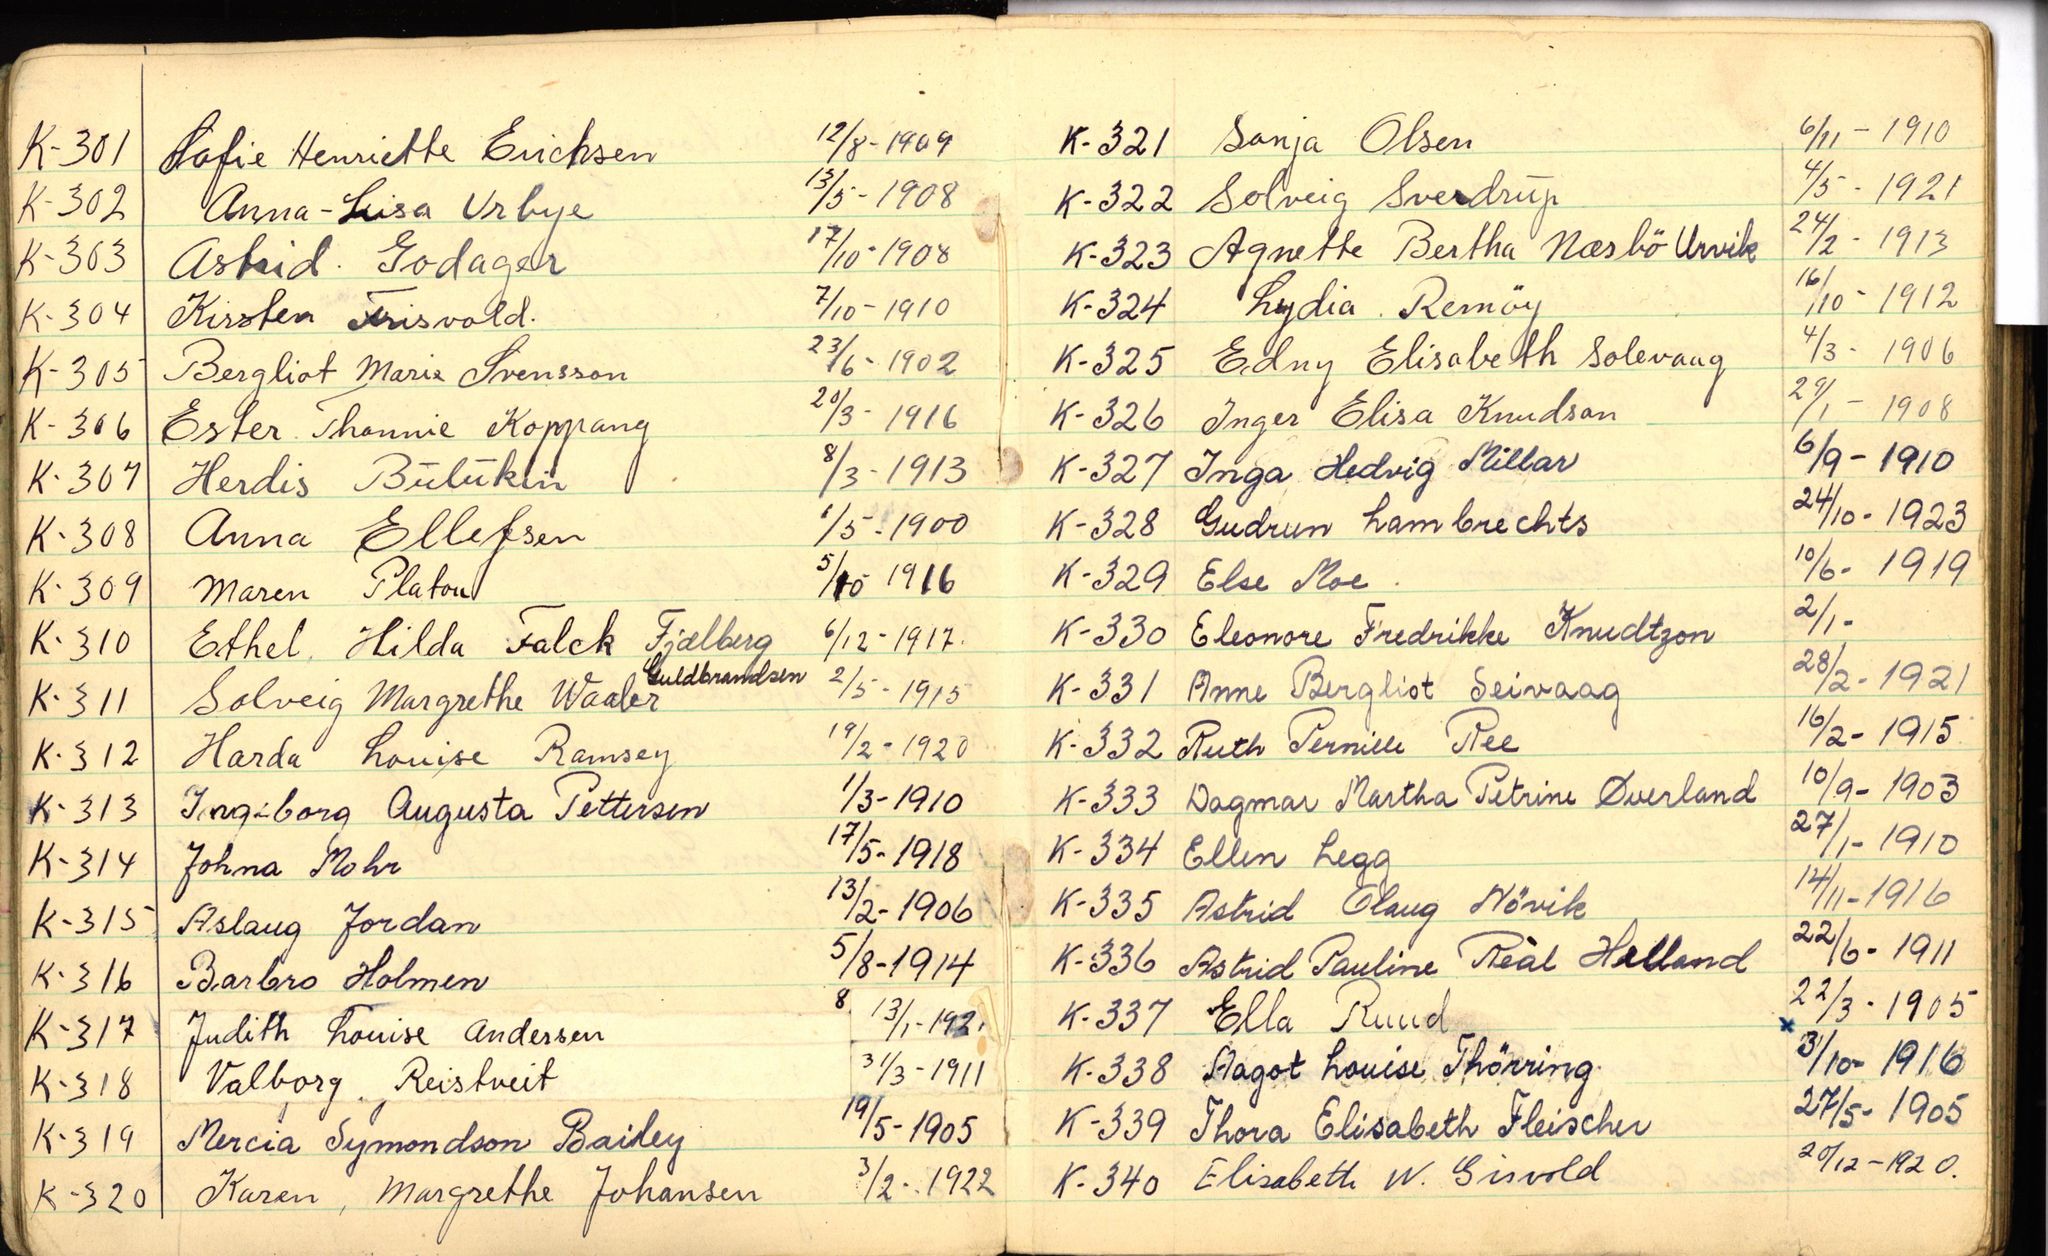 K-301 Sofie Henriette Erichsen 12/8-1909
K-302 Anna-Luisa Urbye 13/5-1908
K-303 Astrid Godager 17/10-1908
K-304 Kirsten Frisvold. 7/10-1910
K-305 Bergliot Marie Svensson 23/6-1902
K-306 Ester Thonnie Koppang 20/3-1916
K-307 Herdis Bulukin 8/3-1913
K-308 Anna Ellefsen 1/5-1900
K-309 Maren Platou 5/10 1916
K-310 Ethel Hilda Falck Fjelberg 6/12-1917.
K-311 Solveig Margrethe Waaler Guldbrandsen 2/5-1915
K-312 Harda Louise Ramsey 19/2-1920
K-313 Ingeborg Augusta Pettersen 1/3-1910
K-314 Johna Mohr 17/5-1918
K-315 Aslaug Jordan 13/2-1906
K-316 Barbro Holmen 5/8-1914
K-317 Judith Louise Andersen 8 13/1-192
K-318 Valborg Reistveit 31/3-1911
K-319 Mercia Symondson Bailey 19/5-1905
K-320 Karen, Margrethe Johansen 3/2-1922
K-321 Sonja Olsen 6/11-1910
K-322 Solveig Sverdrup 4/5-1921
K-323 Agnette Bertha Næsbö Urvik 24/2-1913
K-324 Lydia Remöy 16/10-1912
K-325 Edny Elisabeth Solevaag 4/3-1906
K-326 Inger Elisa Knudson 29/1-1908
K-327 Inga Hedvig Millar 6/9-1910
K-328 Gudrun Lambrechts 24/10-1923
K-329 Else Moe. 10/6-1919
K-330 Eleonore Fredrikke Knudtzon 2/1-
K-331 Anne Bergliot Seivaag 28/2-1921
K-332 Ruth Pernille Ree 16/2-1915
K-333 Dagmar Martha Petrine Øverland 10/9-1903
K-334 Ellen Legg 27/1-1910
K-335 Astrid Olaug Növik 14/11-1916
K-336 Astrid Pauline Reàl Helland 22/6-1911
K-337 Ella Ruud 22/3-1905
K-338 Aagot Louise Thörring x 3/10-1916
K-339 Thora Elisabeth Fleischer 27/5-1905
K-340 Elisabeth W. Gisvold 20/12-1920.